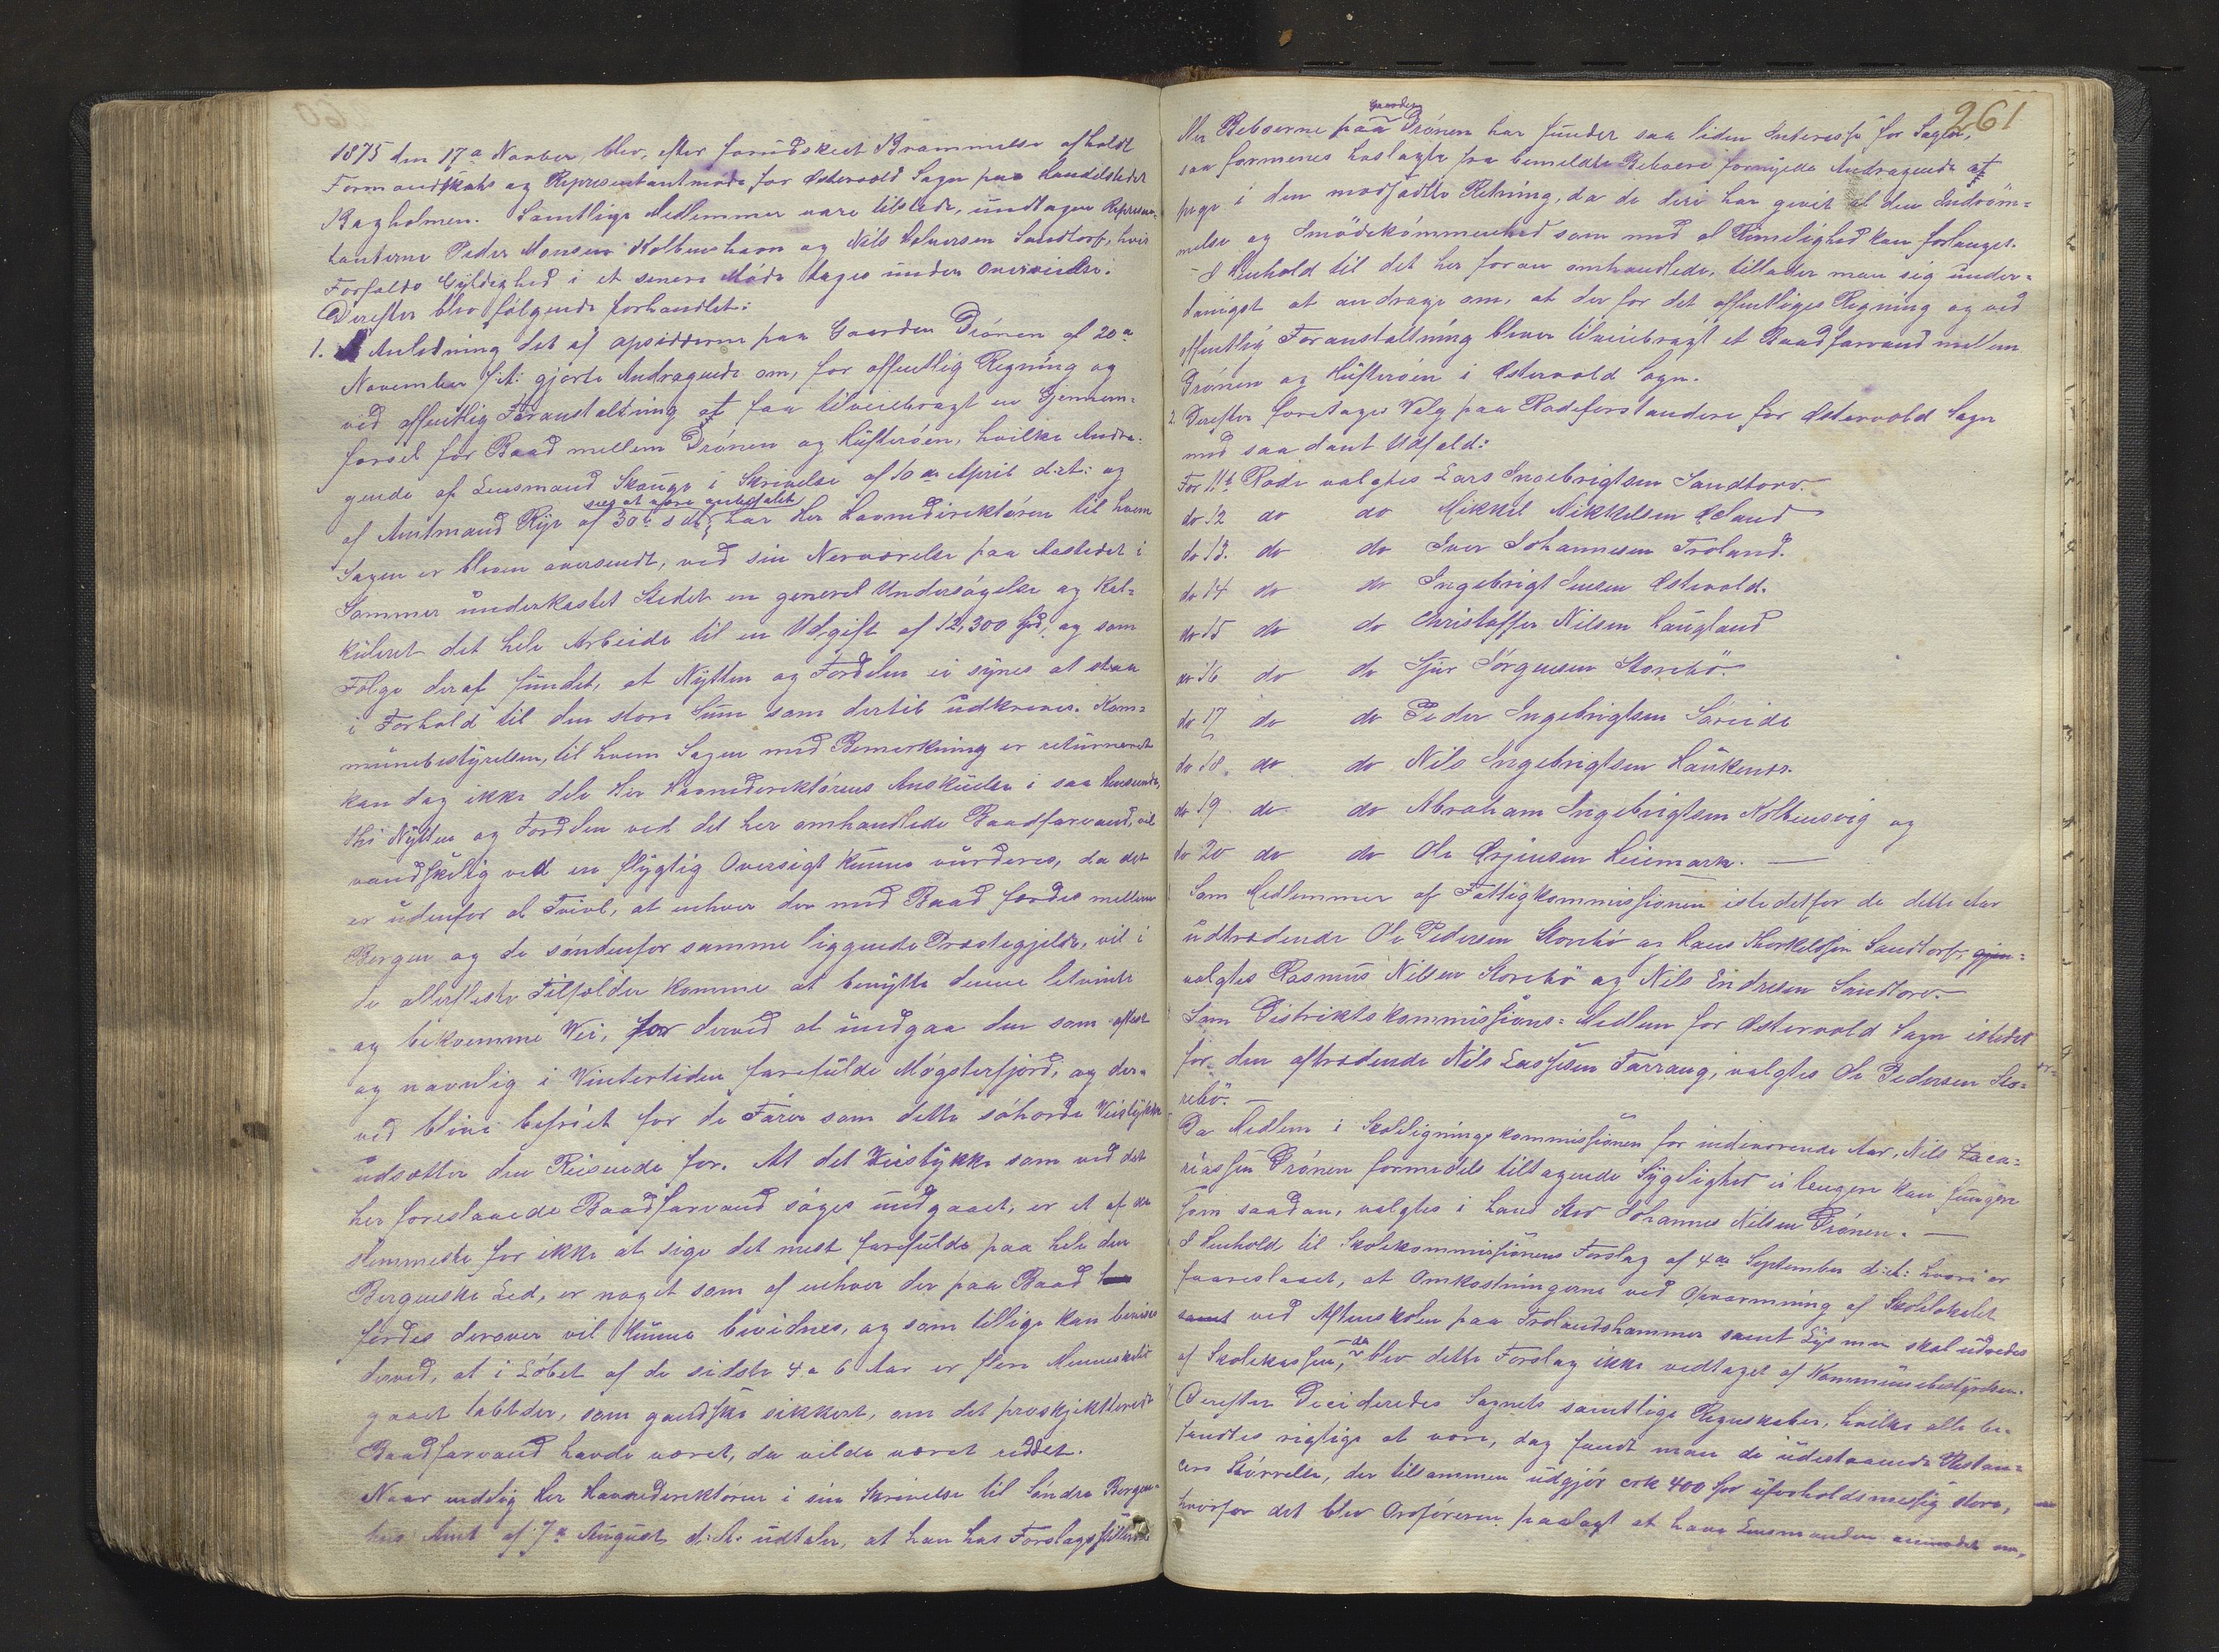 1875 den 17de November, blev, efter forudskeet Berammelse afholdt
Formandskabs og Representantmøde for Østervold Sogn paa Handelstedet
Bagholmen. Samtlige Medlemmer vare tilstede, undtagen Represen-
tanterne Peder Monsen Kolbenshavn og Nils Halvorsen Sandtorv, hvis
Forfalds Gyldighed i et senere Møde tages under Overveielse.
Derefter blev følgende forhandlet:
1. I Anledning det af opsidderne paa Gaarden Drönen af 20de
November f. A. gjorte Andragende om, for offentlig Regning og
ved offentlig Foranstaltning at faa tilveiebragt en Gjennem-
farsel for Baad mellem Drönen og Hufteröen, hvilke Andra-
gende af Lensmand Skauge i Skrivelse af 10de April d. A. og
af Amtmand Rye af 30te s. M.
Sagen er bleven oversendt, ved sin Nerværelse paa Aastedet i
Sommer underkastet Stedet en generel Undersögelse og Kal-
kuleret det hele Arbeide til en Udgift af 12,300 Spd, og som
Følge deraf fundet, at Nytten og Fordelen ei synes at staa
i Forhold til den store Sum som dertil udkreves. Kom-
munebestyrelsen, til hvem Sagen med Bemerkning er returneret
kan dog ikke dele Her Havnedirektörens Anskuelse i saa Henseende,
thi Nytten og Fordelen ved det her omhandlede Baadfarvand, vil
vandskelig ved en flygtig Oversigt kunne vurderes, da det
er udenfor al Tvivl, at enhver der med Baad færdes mellem
Bergen og de söndenfor samme liggende Prestegjelde, vil i
de allerfleste Tilfælder komme at benytte denne letvinte
og bekvemme Vei, for derved at undgaa den som oftest
og navnlig i Vintertiden farefulde Mögsterfjord, og der-
ved blive befriet for de Farer som dette söhaarde Veistykke
udsætter den Reisende for. At det Veistykke som ved det
her foreslaaede Baadfarvand söges undgaaet, er et af de
slemmeste for ikke at sige det mest farefulde paa hele den
Bergenske Led, er noget som af enhver der paa Baad
færdes derover vil kunne bevidnes, og som tillige kan bevises
derved, at i Löbet af de sidste 4 a 6 Aar er flere Menneskeliv
gaaet tabt der, som gandske sikkert, om det proskjekterede
Baadfarvand havde været, da vilde været reddet.
Naar endelig Her Havnedirektören i sin Skrivelse til Söndre Bergen-
hus Amt af 7de August d. A. udtaler, at han has Forslagsstillerne
261
eller Beboerne paa Gaarden Drönen har funder saa liden Interesse for Sagen,
saa formenes hoslagte fra bemeldte Beboere fornyede Andragende at
pege i den modsadte Retning, da de deri har givet al den Indröm-
melse og Imödekommenhed som med al Rimelighed kan forlanges.
I Henhold til det her foran omhandlede, tillader man sig under-
danigst at andrage om, at der for det offentliges Regning og ved
offentlig Foranstaltning bliver tilveiebragt et Baadfarvand mellem
Drönen og Hufteröen i Østervold Sogn.
2. Derefter foretages Valg paa Rodeforstandere for Østervold Sogn
med saadant Udfald:
For 11te Rode valgtes Lars Ingebrigtsen Sandtorv.
do 12 do do Mikkel Mikkelsen
do 13. do do Iver Johannesen Troland.
do 14 do do Ingebrigt Jensen Østervold.
do 15 do do Christoffer Nilsen Haugland
do 16 do do Sjur Jörgensen Storebö.
do 17 do do Peder Ingebrigtsen
do 18. do do Nils Ingebrigtsen Haukenæs.
do 19 do do Abraham Ingebrigtsen Kolbensvig og
do 20 do do Ole Leiemark.
Som Medlemmer af Fattigkommissionen istedetfor de dette Aar
udtrædende Ole Pedersen Storebö og Hans Thorkelssen Sandtorv gjen-
valgtes Rasmus Nilsen Storebö og Nils Endresen Sandtorv.
Som Distriktskommissions-Medlem for Østervold Sogn istedet
for den aftrædende Nils Lassesen Tarrang, valgtes Ole Pedersen Sto-
rebö.
Da Medlem i Skoleligningskommissionen for indeværende Aar, Nils Zaca-
riassen Drönen formedels tiltagende Sygelighed ei lengere kan fungere
som saadan, valgtes i hans Sted Johannes Nilsen Drönen.
I Henhold til Skolekommissionens Forslag af 4de September d. A. hvori er
foareslaaet, at Omkostningerne ved Opvarmning af Skolelokalet
samt ved Aftenskolen paa Trolandshammer samt Lys mm skal udredes
af Skolekassen, da blev dette Forslag ikke vedtaget af Kommunebestyrelsen.
Derefter Decideredes Sognets samtlige Regnskaber, hvilke alle be-
fandtes rigtige at være, dog fandt man de udestaaende Restan-
cers Störrelse, der tilsammen udgjør crk 400 Spd uforholdsmessig store,
hvorfor det blev Ordføreren paalagt at have Lensmanden anmodet om,